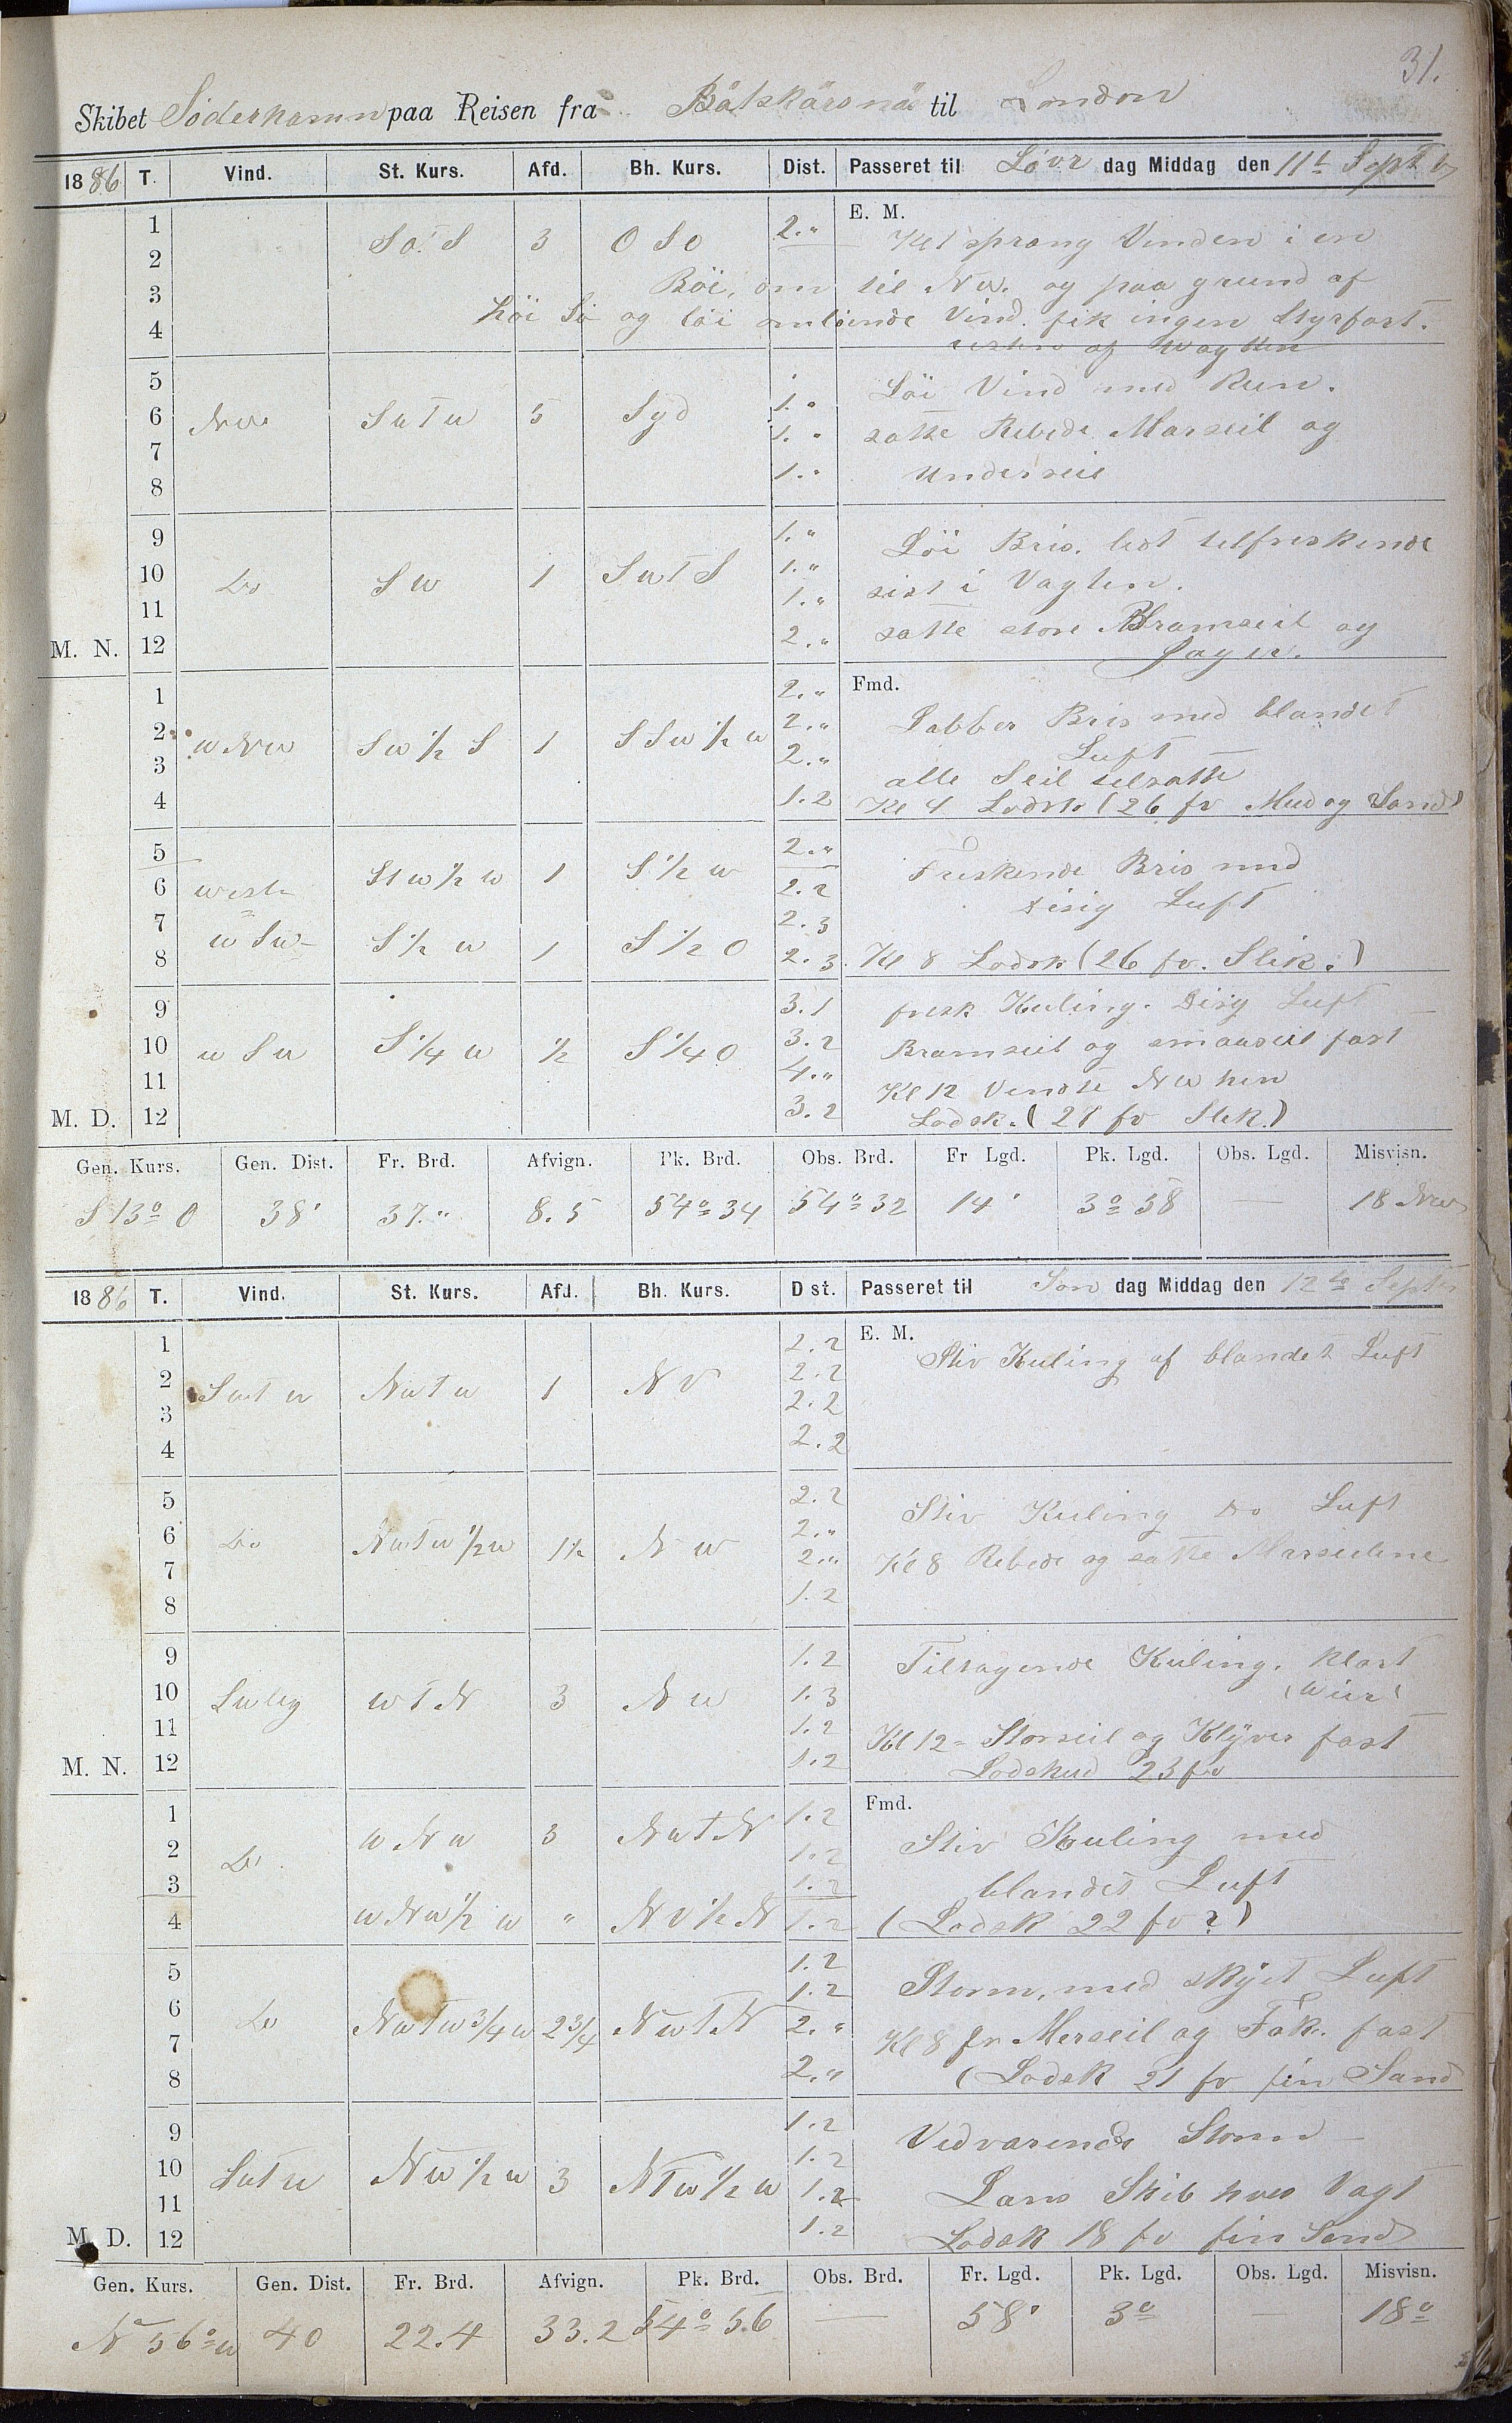 31.
Skibet Söderhamn paa Reisen fra Båtskärsnäs til London
1886 T. Vind. St. Kurs. Afd. Bh. Kurs. Dist. Passeret til Lövr dag Middag den 11t Septbr
E. M.
1 2 3 4 SotS 3 OSO 2."
Kl 1 sprang Vinden i en
Böi, om til Nw. og paa grund af
höi Sö og löi omlöende Vind. fik ingen Styrfart.
resten af Wagten
5 6 7 8 Nw SwTw 5 Syd 1." 1." 1."
Löi Vind med Run.
satte Rebede Marseil og
Underseil
9 10 11 12 Do Sw 1 SwTS 1." 1." 1." 2."
Löi Bris. lidt tilfriskende
sist i Vagten.
satte store Bramseil og
Jager.
M. N.
Fmd.
1 2 3 4 wNw Sw 1/2 S 1 SSw 1/2 w 2." 2." 2." 1.2
Labber Bris med blandet
Luft
alle Seil tilsatte
Kl 4 Lodsk (26 fv Mud og Sand)
5 6 7 8 west StW 1/2 w 1 S 1/2 w 2." 2.2
wSw S 1/2 w 1 S 1/2 O 2.3 2.3
Friskende Bris med
disig Luft
Kl 8 Lodsk (26 fv. Slik.)
9 10 11 12 wSw S 1/4 w 1/2 S 1/4 O 3.1 3.2 4." 3.2
frisk Kuling. Disig Luft
Bramseil og smaaseil fast
Kl 12 Vendte Nw hen
Lodsk. (21 fv Slik.)
M. D.
Gen. Kurs. Gen. Dist. Fr. Brd. Afvign. Pk. Brd. Obs. Brd. Fr Lgd. Pk. Lgd. Obs. Lgd. Misvisn.
S 13° O 38' 37." 8.5 54° 34 54° 32 14' 3° 58 — 18 Nw
1886 T. Vind. St. Kurs. Afd. Bh. Kurs. Dist. Passeret til Søn dag Middag den 12te Septbr
E. M.
1 2 3 4 Swtw NwTw 1 NV 2.2 2.2 2.2 2.2
Stiv Kuling af blandet Luft
5 6 7 8 Do NwTw 1/2 w 1 1/2 Nw 2.2 2." 2." 1.2
Stiv Kuling Do Luft
Kl 8 Rebede og satte Marseilene
9 10 11 12 Swlig wTN 3 Nw 1.2 1.3 1.2 1.2
Tiltagende Kuling. Klart
Kl 12 Storseil og Klyver fast
Lodskud 23 fv
M. N.
Fmd.
1 2 3 4 Do wNw 3 NwTN 1.2 1.2 1.2
wNw 1/2 w " NV 1/2 N 1.2
Stiv Kuling med
blandet Luft
(Lodsk 22 fv ?)
5 6 7 8 Do NwTw 3/4 w 2 3/4 NwTN 1.2 1.2 2." 2."
Storm, med skyet Luft
Kl 8 fv Merseil og Fok. fast
(Lodsk 21 fv fin Sand
9 10 11 12 SwTw Nw 1/2 w 3 NTw 1/2 w 1.2 1.2 1.2 1.2
Vedvarende Storm
Lens Skib hver Vagt
Lodsk 18 fv fin Sand
M. D.
Gen. Kurs. Gen. Dist. Fr. Brd. Afvign. Pk. Brd. Obs. Brd. Fr. Lgd. Pk. Lgd. Obs. Lgd. Misvisn.
N 56° w 40 22.4 33.2 54° 56 — 58' 3° — 18°